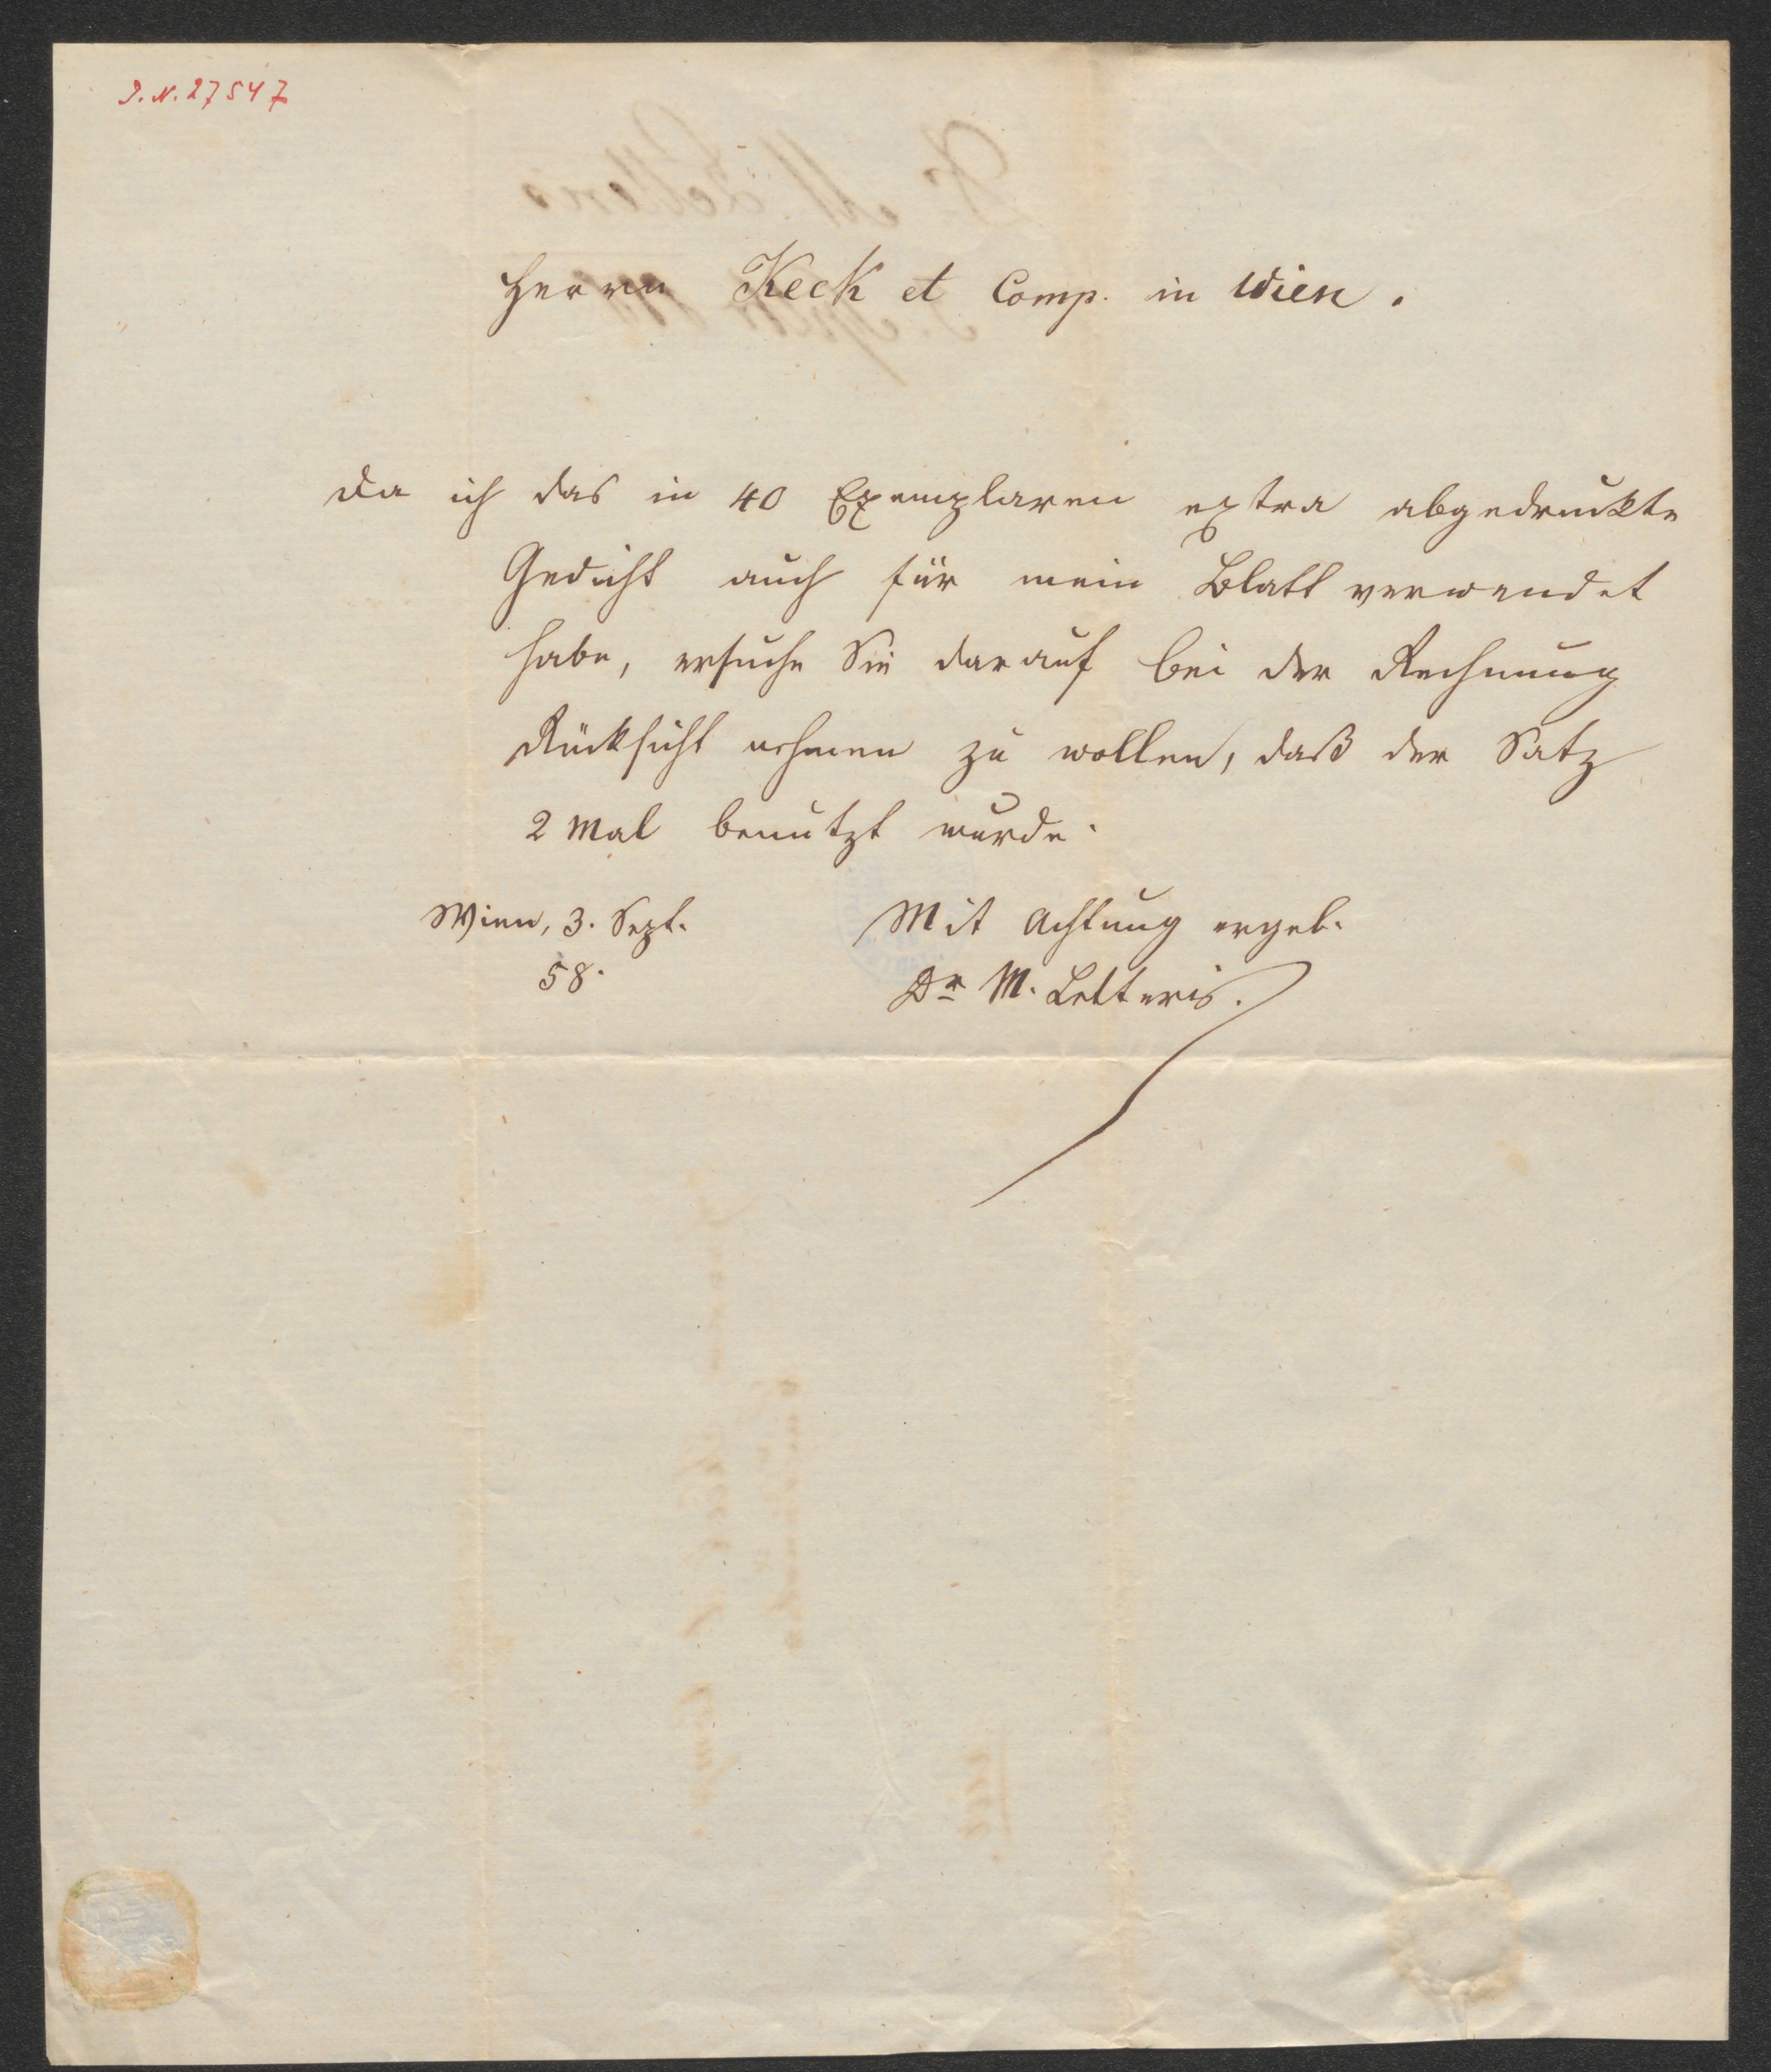 J. N. 27547
Herrn Keck et Comp. in Wien.
Da ich das in 40 Exemplaren extra abgedruckte
Gedicht auch für mein Blatt verwendet
habe, ersuche Sie darauf bei der Rechnung
Rücksicht nehmen zu wollen, daß der Satz
2 Mal benutzt wurde.
Wien, 3. Sept.
58.
Mit Achtung ergeb.
Dr M. Letteris.